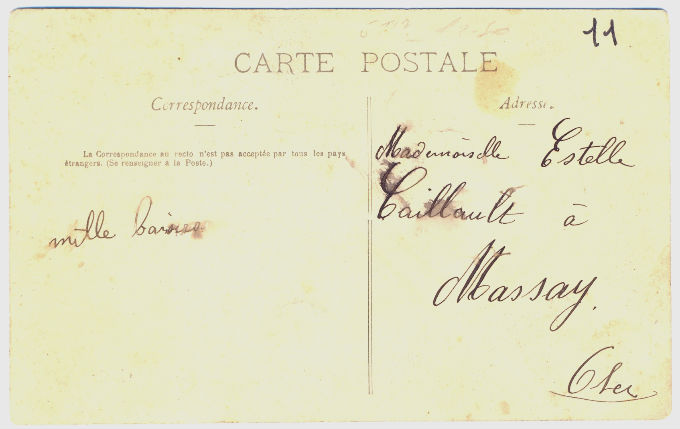 11
CARTE POSTALE
Correspondance.
La Correspondance au recto n'est pas acceptée par tous les pays
étrangers. (Se renseigner à la Poste.)
mille baisers
Adresse.
Mademoiselle Estelle
Caillault à
Massay
Cher